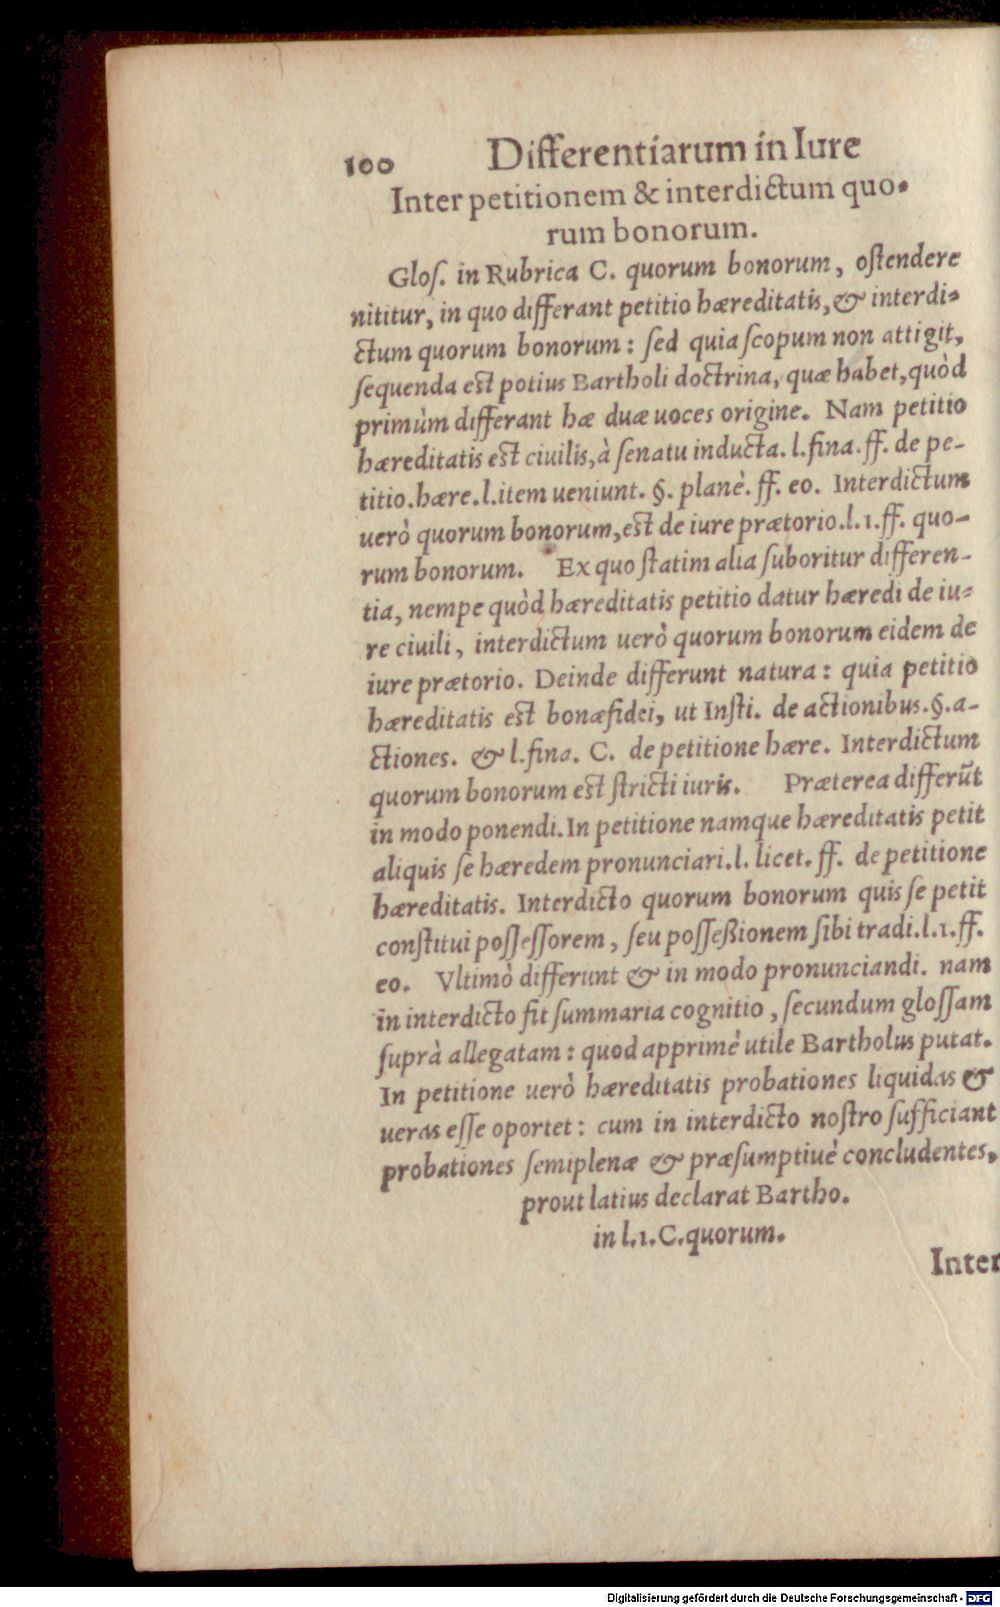 100 Differentiarum in Iure
Inter petitionem & interdictum quo-
rum bonorum.
Gloſ. in Rubrica C. quorum bonorum, oſtendere
nititur, in quo differant petitio hæreditatis, & interdi-
ctum quorum bonorum: ſed quia ſcopum non attigit,
ſequenda eſt potius Bartholi doctrina, quæ habet, quòd
primùm differant hæ duæ uoces origine. Nam petitio
hæreditatis eſt ciuilis, à ſenatu inducta. l. fina. ff. de pe-
titio. hære. l. item ueniunt. §. planè. ff. eo. Interdictum
uerò quorum bonorum, eſt de iure prætorio. l. 1. ff. quo-
rum bonorum. Ex quo ſtatim alia ſuboritur differen-
tia, nempe quòd hæreditatis petitio datur hæredi de iu-
re ciuili, interdictum uerò quorum bonorum eidem de
iure prætorio. Deinde differunt natura: quia petitio
hæreditatis eſt bonæfidei, ut Inſti. de actionibus. §. a-
ctiones. & l. fina. C. de petitione hære. Interdictum
quorum bonorum eſt ſtricti iuris. Præterea differūt
in modo ponendi. In petitione namque hæreditatis petit
aliquis ſe hæredem pronunciari. l. licet. ff. de petitione
hæreditatis. Interdicto quorum bonorum quis ſe petit
conſtitui poſſeſſorem, ſeu poſſeßionem ſibi tradi. l. 1. ff.
eo. Vltimò differunt & in modo pronunciandi. nam
in interdicto fit ſummaria cognitio, ſecundum gloſſam
ſuprà allegatam: quod apprimè utile Bartholus putat.
In petitione uerò hæreditatis probationes liquidas &
ueras eſſe oportet: cum in interdicto noſtro ſufficiant
probationes ſemiplenæ & præſumptiuè concludentes,
prout latius declarat Bartho.
in l. 1. C. quorum.
Inter
Digitalisierung gefördert durch die Deutsche Forschungsgemeinschaft - DFG